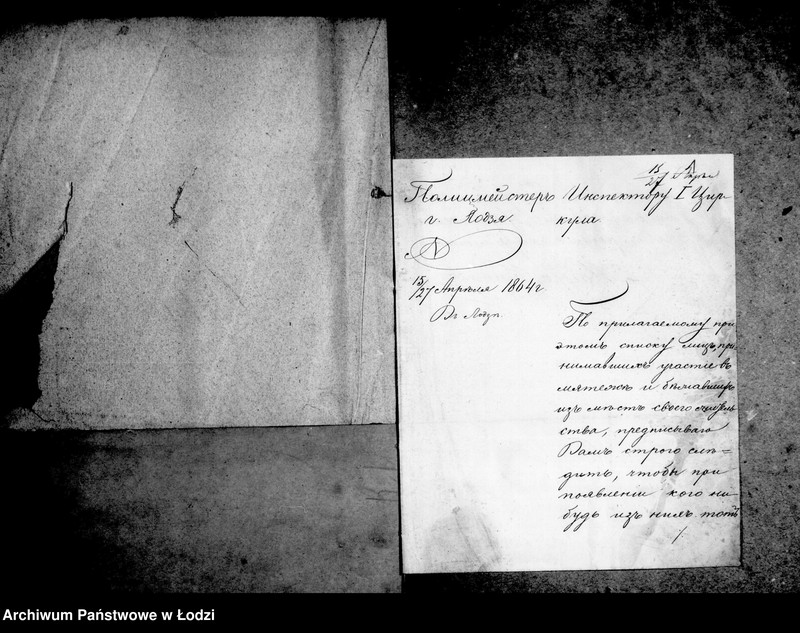 15/27 Апрѣля
Полицмейстеръ
г. Лодзя
N
15/27 Апрѣля 1864 г
Въ Лодзи.
Инспектору I Цир-
кула
По прилагаемому при
этомъ списку лицъ при
нимавшихъ участіе въ
мятежѣ и бѣжавшихъ
изъ мѣстъ своего житель
ства, предписываю
Вамъ строго слѣ=
дить, чтобы при
появленіи кого ни
будь изъ нихъ тотъ
./.
Archiwum Państwowe w Łodzi